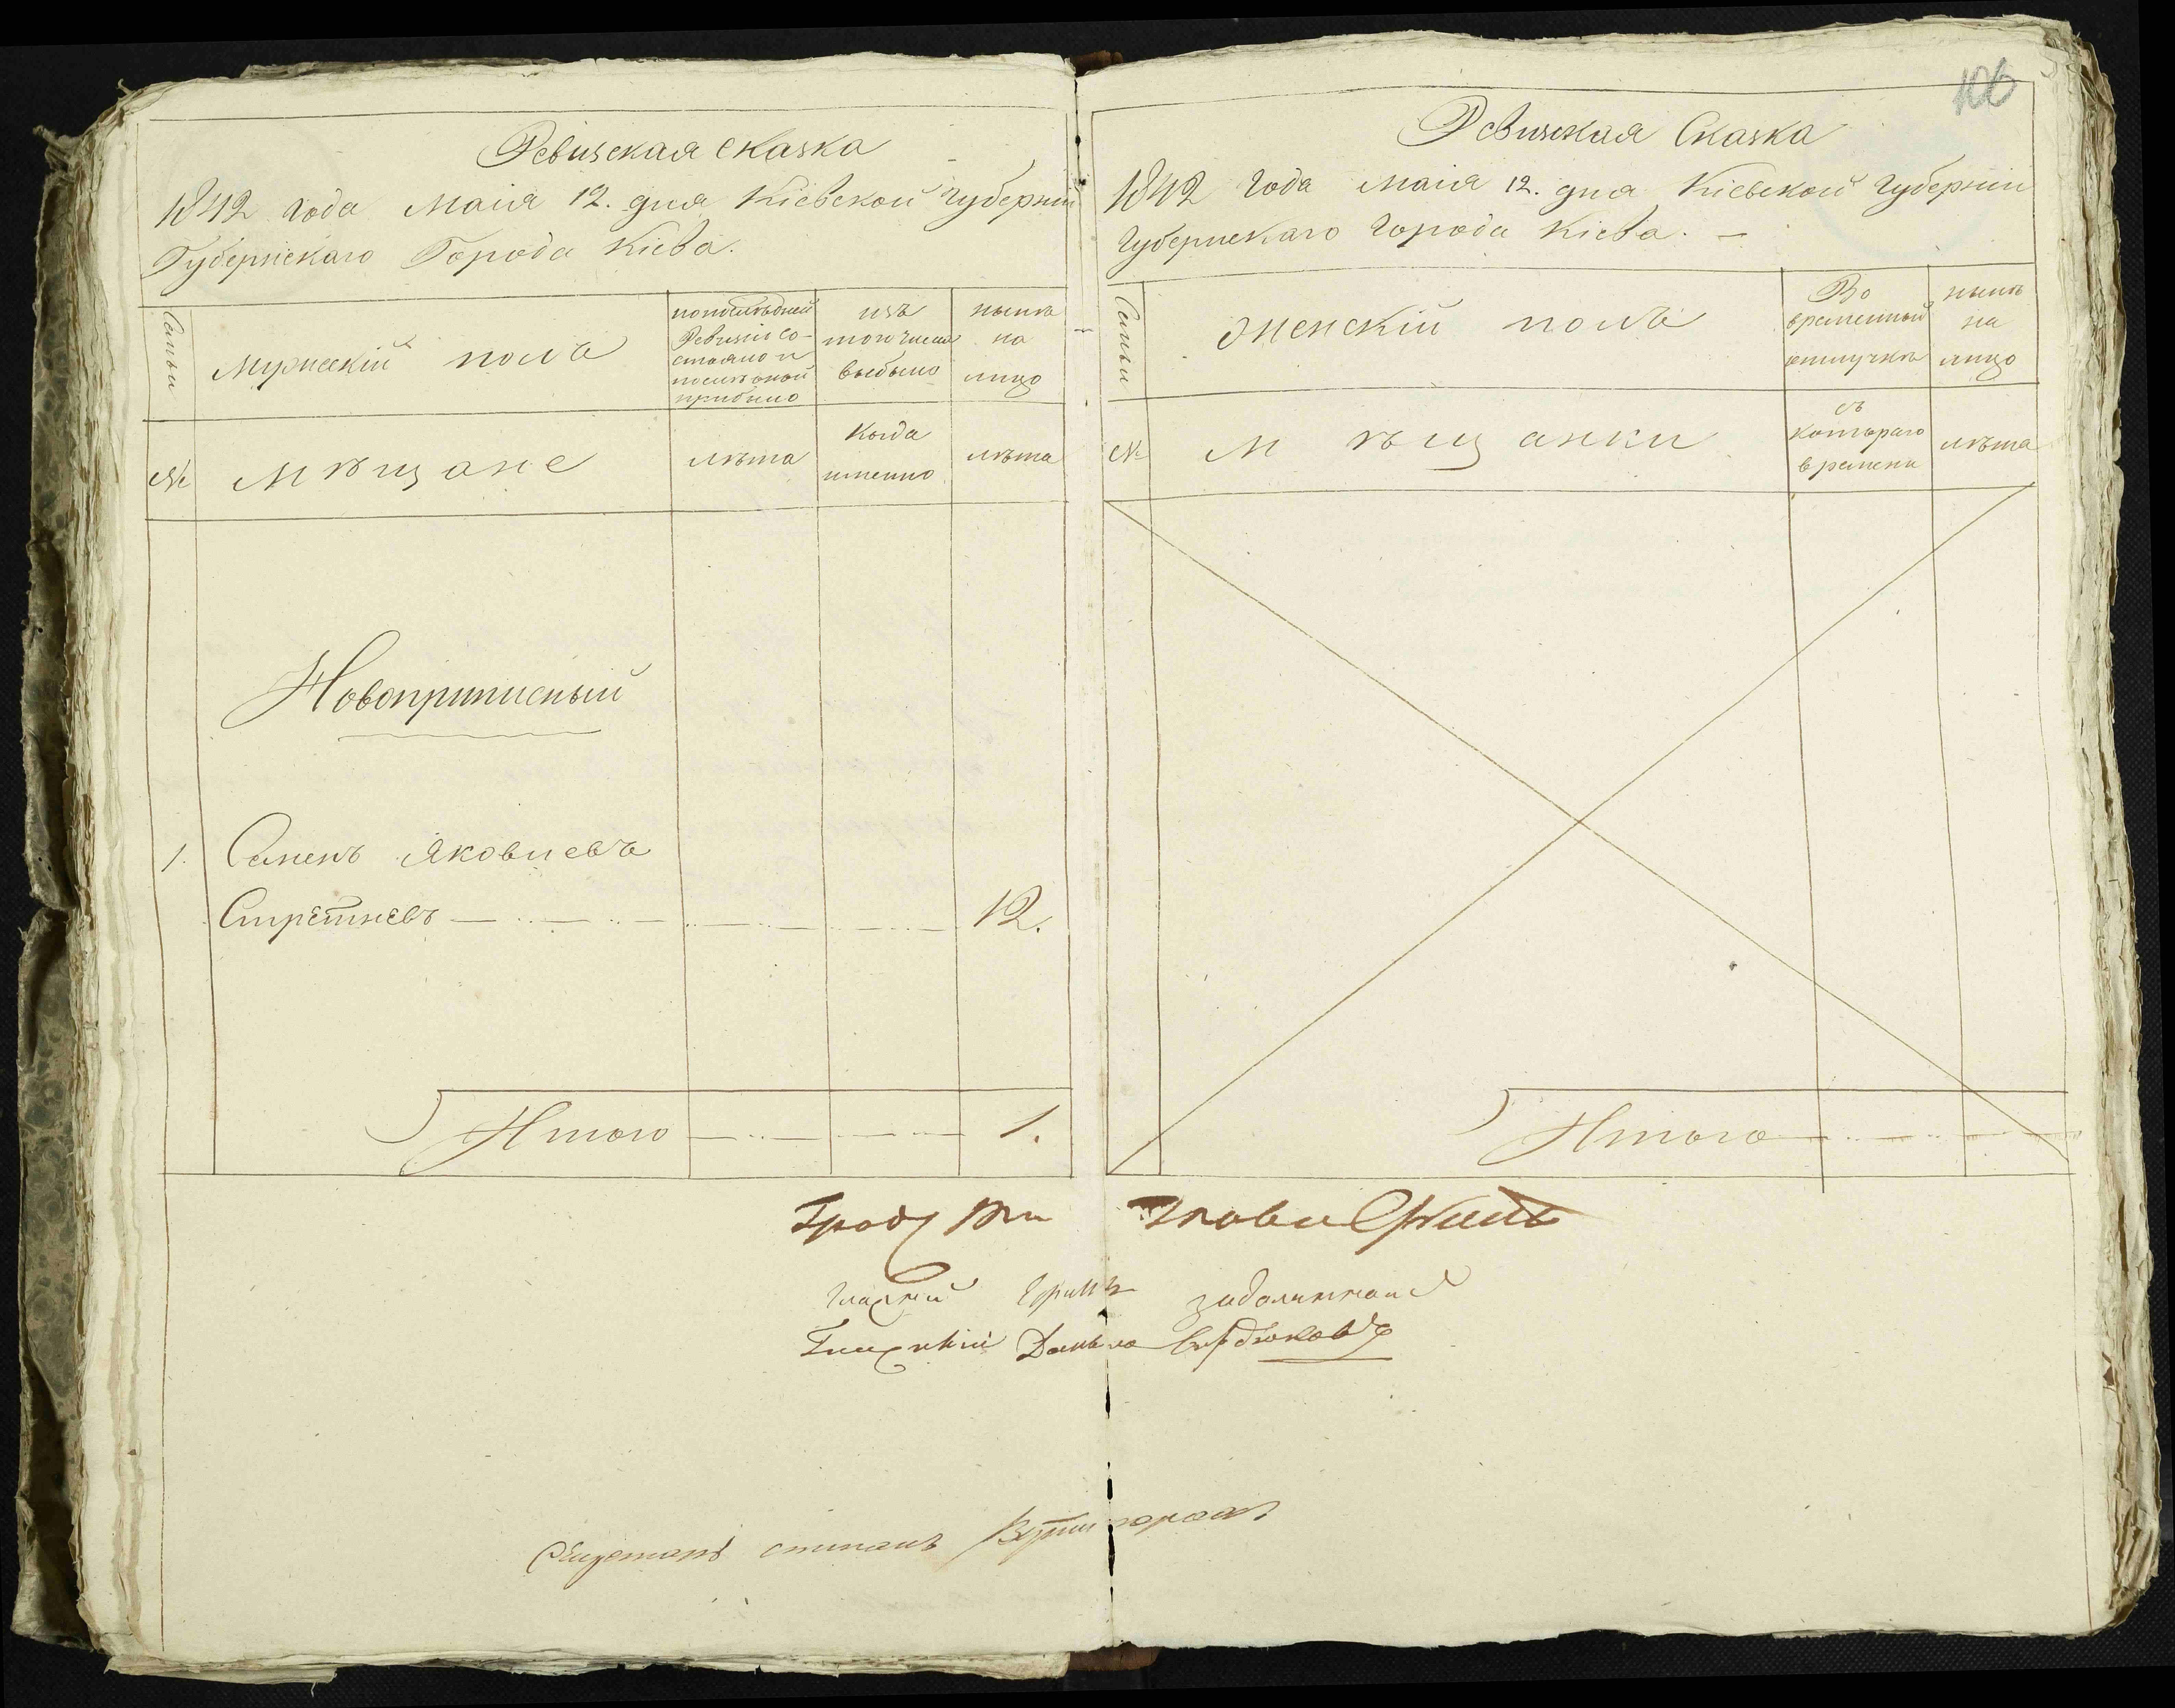 Ревизская сказка
1842 года маия 12. дня Кіевской губерніи
Губернскаго Города Кіева.
Семьи
Мужескій полъ
попоследней
Ревизіи со-
стояло и
после оной
прибыло
изъ
того числа
выбыло
ныне
на
лицо
№
Мѣщане
лѣта
Когда
именно
лѣта
Новоприписный
1. Семенъ Яковлевъ
Стрѣтневъ 12.
Итого 1.
106
Ревизская Сказка
1842 года маия 12. дня Кіевской губерніи
Губернскаго города Кіева.
Семьи
Женскій полъ
Во
временной
отлучкѣ
нынѣ
на
лицо
№
Мѣщанки
съ
котораго
времени
лѣта
Итого
Гласный
Гласный Данило Сердюковъ
степанъ